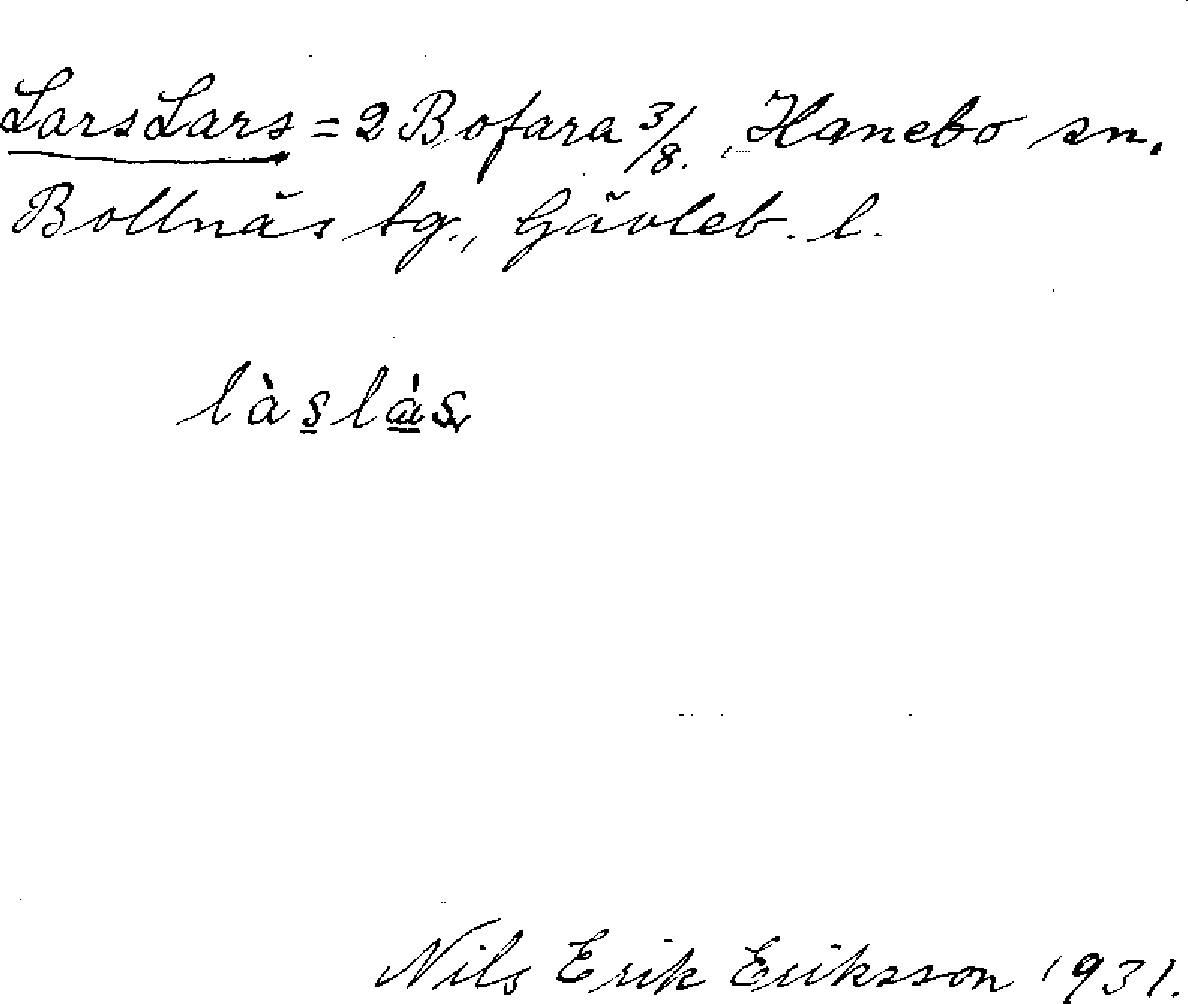 Lars Lars = 2 Bofara 3/8. , Hanebo sn.
Bollnäs tg., Gävleb. l.
làs̲là̲s
Nils Erik Eriksson 1931.